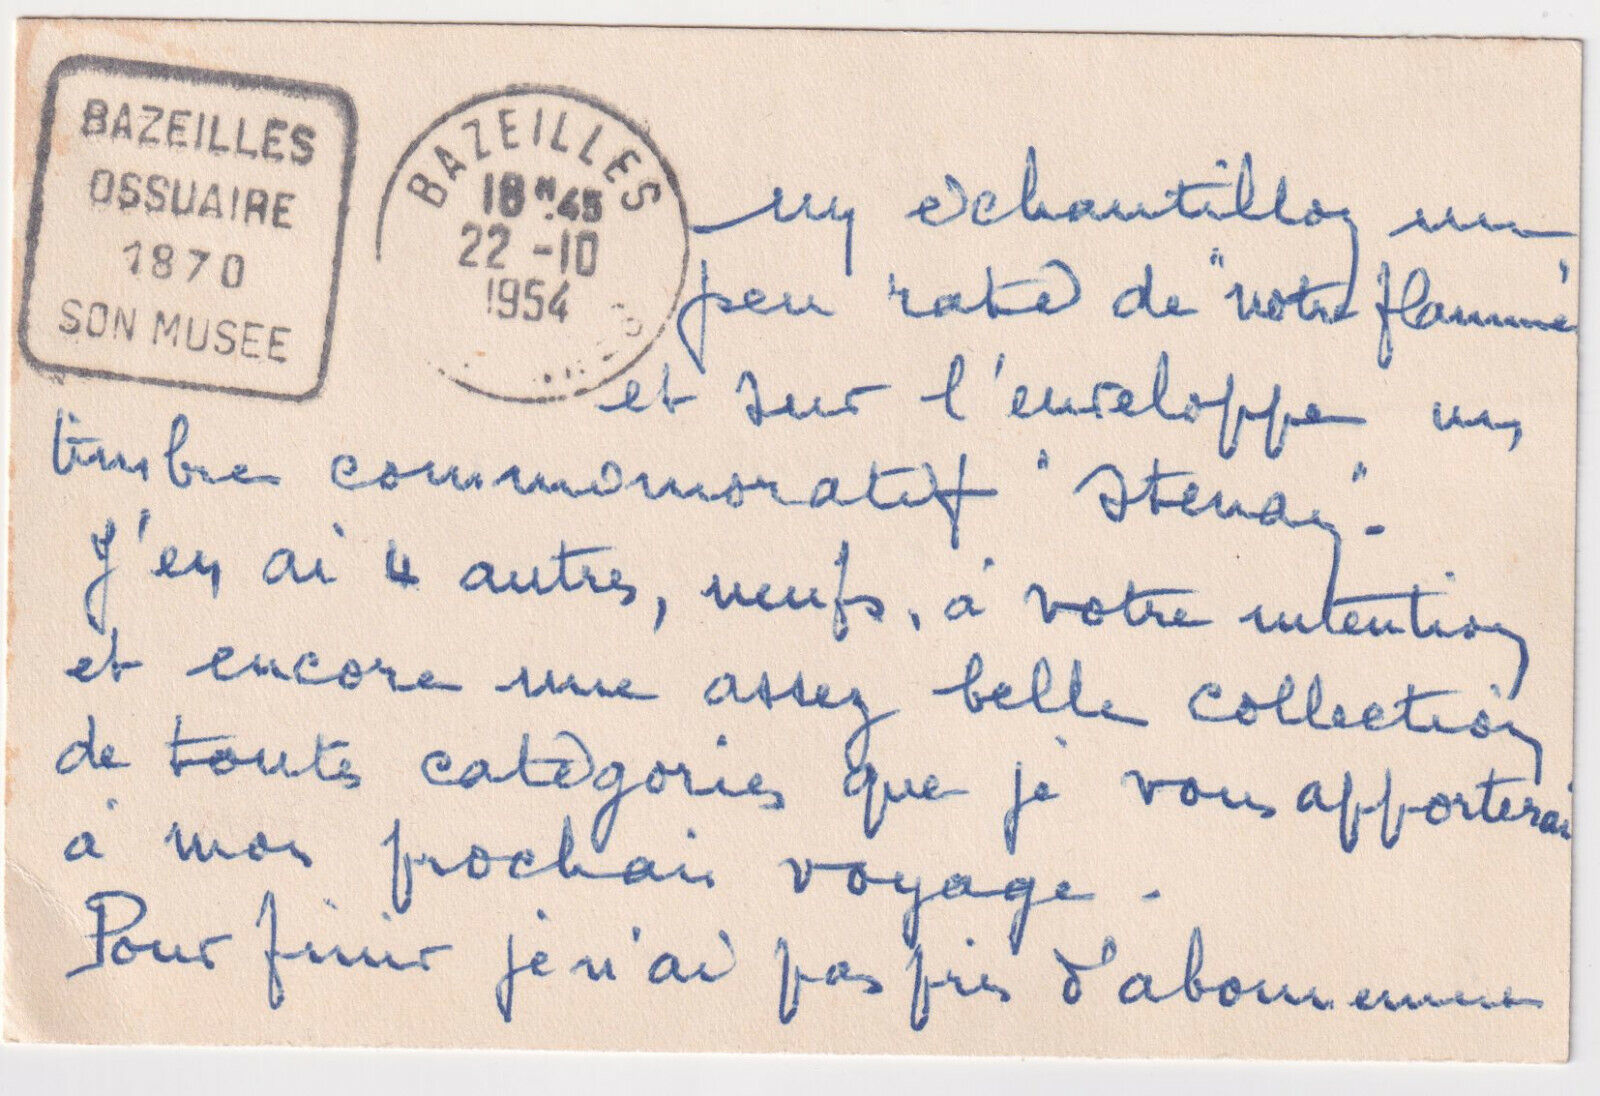 BAZEILLES
OSSUAIRE
1870
SON MUSEE
BAZEILLES
18H45
22-10
1954
un échantillon un
peu raté de "notre flamme"
et sur l'enveloppe un
timbre commémoratif "Stenay".
J'en ai 4 autres, neufs, à votre intention
et encore une assez belle collection
de toutes catégories que je vous apporterai
à mon prochain voyage.
Pour finir je n'ai pas pris d'abonneme